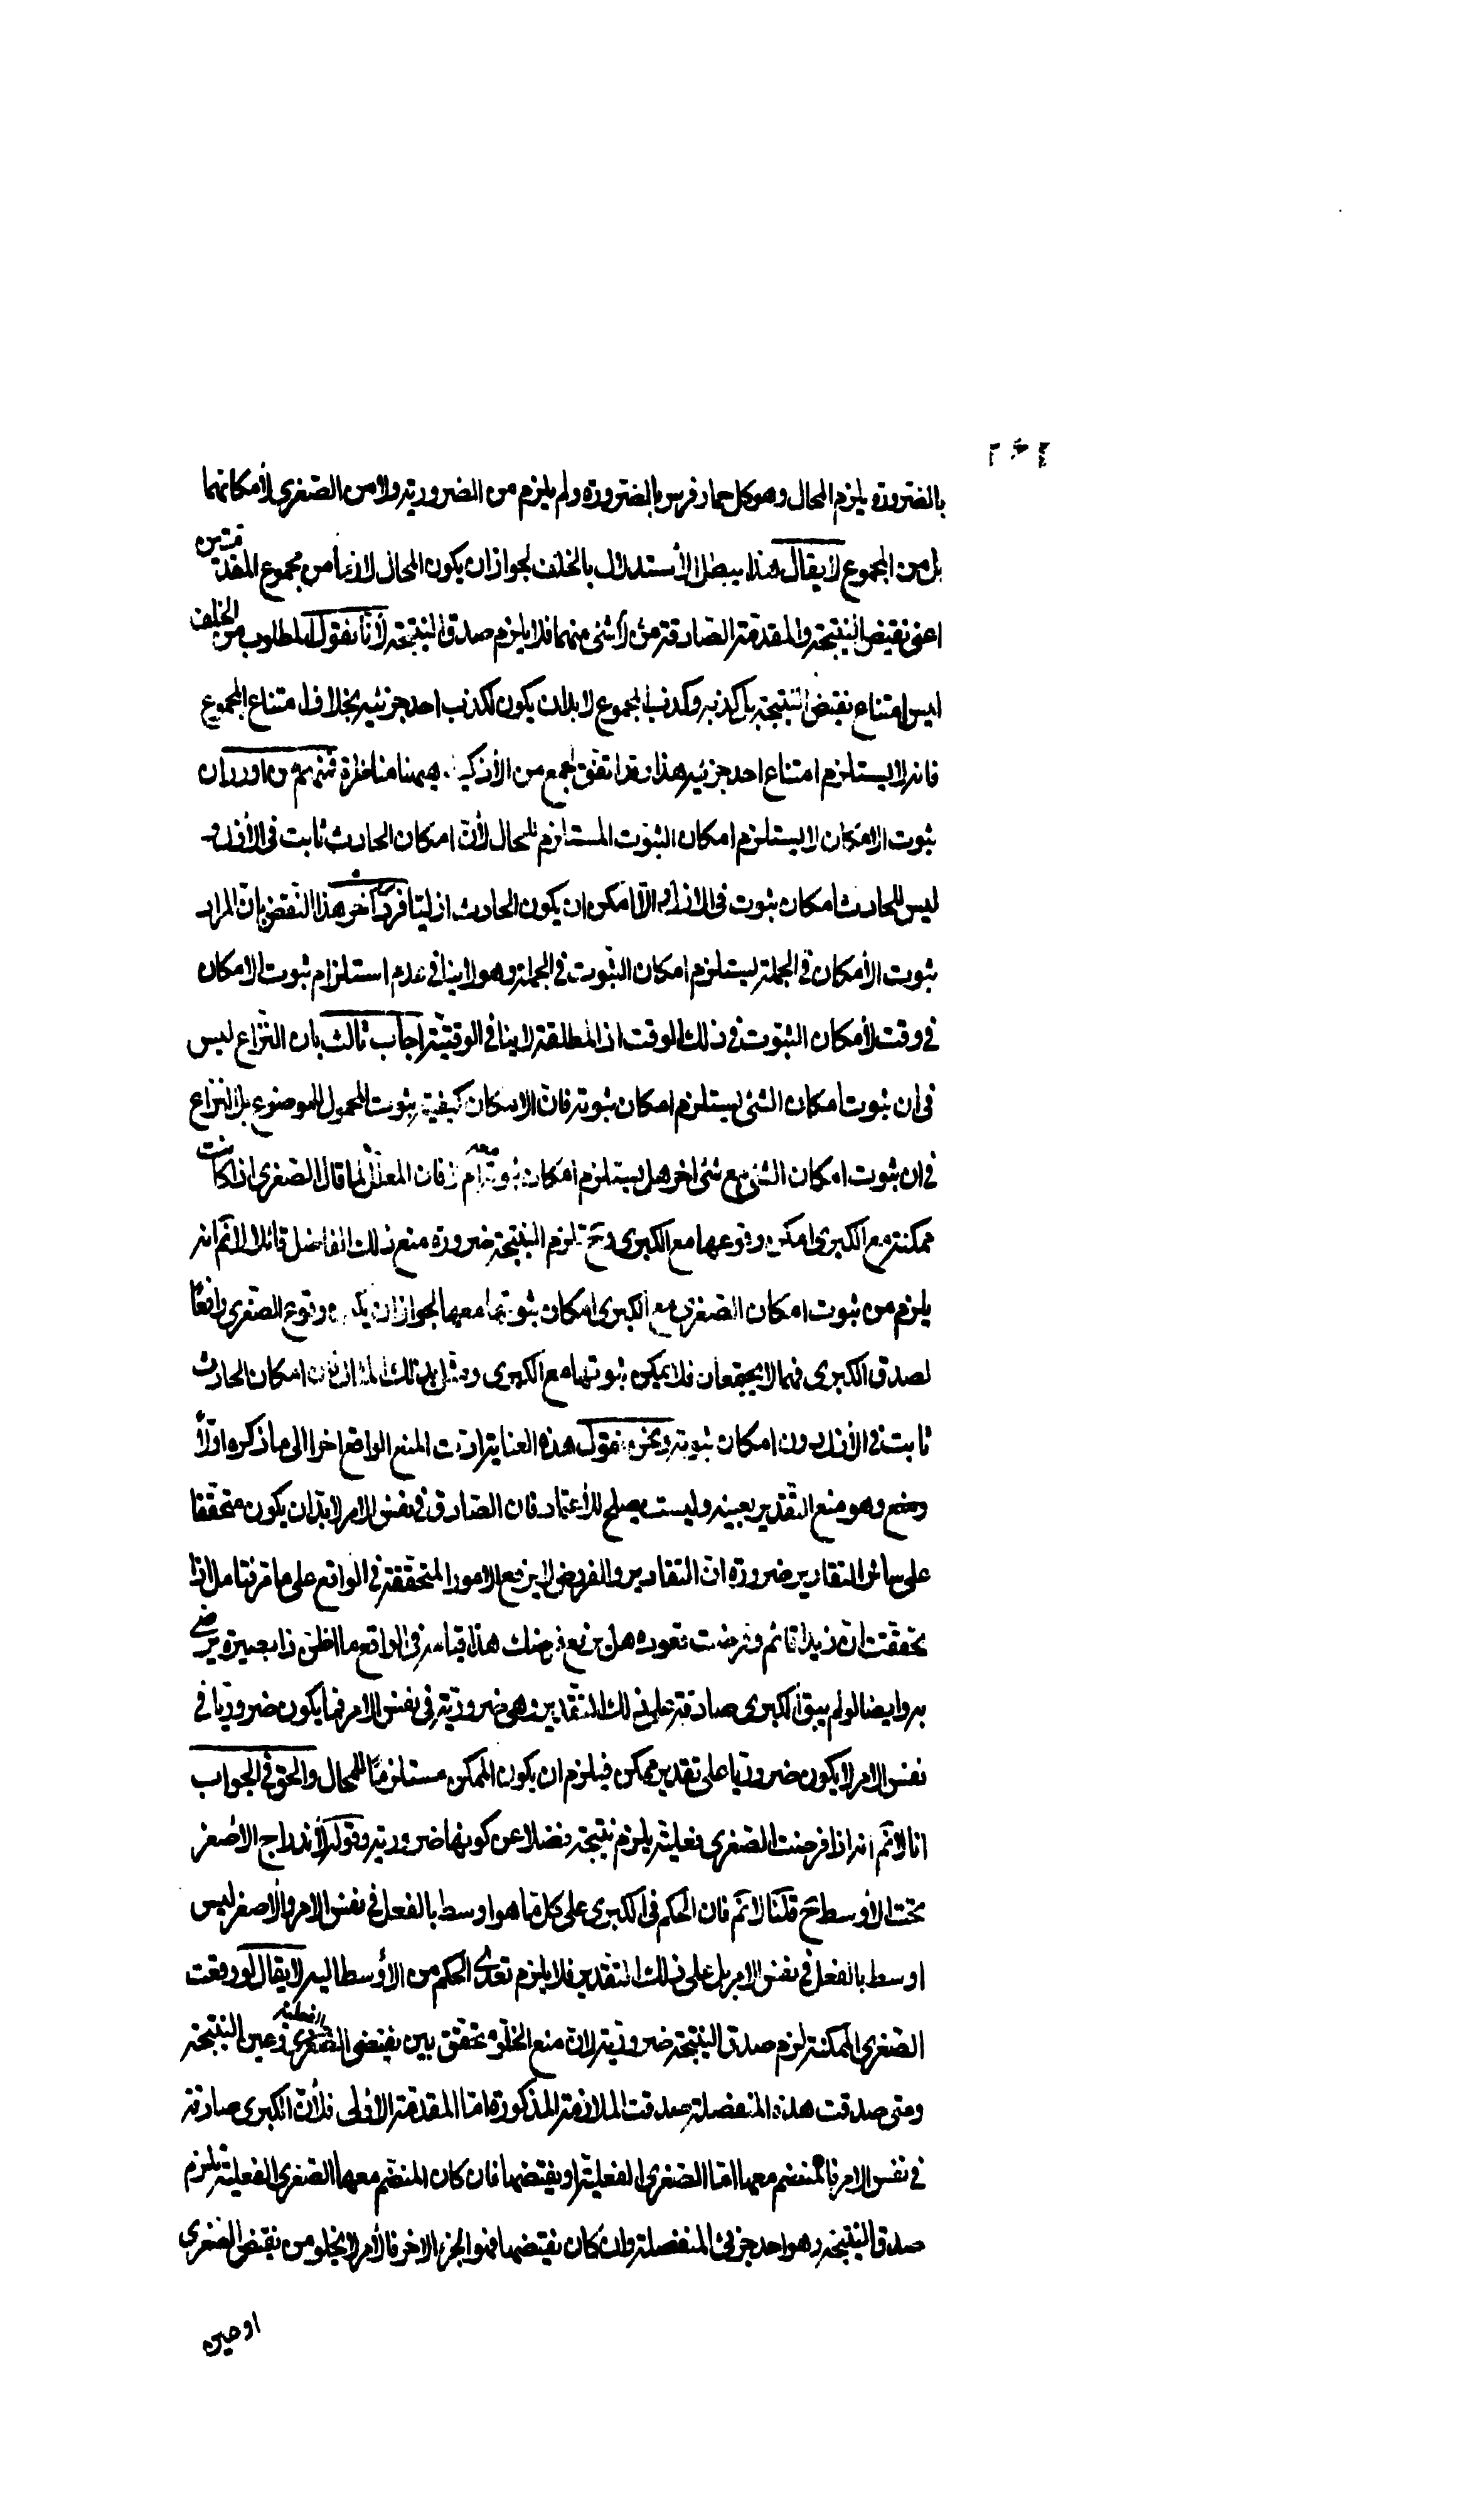 ٢٦٢
بالضرورة يلزم المحال وهو كل حمار فرس بالضرورة ولم يلزم من الضرورية ولا من الصغرى لأمكانهما
بل من المجموع لا يقال هذا يبطل الأستدلال بالخلف لجواز ان يكون المحال لازما من مجموع المقدمتين
اعنى نقيض النتيجة والمقدمة الصادقة من لا شئ منهما فلا يلزم صدق النتيجة لأنا نقول المطلوب من الخلف
ليس امتناع نقيض النتيجة بل كذبه وكذب المجموع لا بد ان يكون لكذب احد جزئيه بخلاف امتناع المجموع
فانه لا يستلزم امتناع احد جزئيه هذا وقد اتفق لجمع من الأذكياء ههنا مناظرة فمنهم من اورد ان
ثبوت الامكان لا يستلزم امكان الثبوت المستلزم للمحال لأن امكان الحادث ثابت فى الأزل و
ليس للحادث امكان ثبوت فى الازل والا امكن ان يكون الحادث ازليا فرد آخر هذا النقض بان المراد
ثبوت الأمكان فى الجملة يستلزم امكان الثبوت فى الجملة وهو لا ينافى عدم استلزام ثبوت الامكان
فى وقت لأمكان الثبوت فى ذلك الوقت اذ المطلقة لا ينافى الوقتية اجاب ثالث بان النزاع ليس
فى ان ثبوت امكان الشئ يستلزم امكان ثبوته فان الامكان كيفية ثبوت المحمول للموضوع بل النزاع
فى ان ثبوت امكان الشئ مع شئ اخر هل يستلزم امكان ثبوته معه ام لا فان المعلل لما قال الصغرى اذا كانت
ممكنة مع الكبرى امكن وقوعها مع الكبرى وح تلزم النتيجة ضرورة منع ذلك الفاضل قائلا لا نم انه
يلزم من ثبوت امكان الصغرى مع الكبرى امكان ثبوتها معها لجواز ان يكون وقوع الصغرى رافعا
لصدق الكبرى فهما لا يجتمعان فلا يمكن ثبوتها مع الكبرى ومثل بذلك المثال فان امكان الحادث
ثابت فى الأزل بدون امكان ثبوته ونحن نقول هذه العناية ادت المنع الواقع اخرا الى ما ذكره اولا
ومنع وهو منع التقدير بعينه وليست يصلح للأعتماد فان الصادق فى نفس الامر لا بد ان يكون متحققا
على سائر التقادير ضرورة ان التقادير والفروض لا يرفع الامور المتحققة فى الواقع على ما مر فتامل اذا
تحققت ان زيدا قائم وفرضت قعوده هل يرفع فرضك هذا قيامه فى الواقع ما اظن ذا بصيرة يرضى
به وايضا لو لم يبق الكبرى صادقة على ذلك التقدير وهى ضرورية فى نفس الامر فما يكون ضروريا فى
نفس الامر لا يكون ضروريا على تقدير ممكن فيلزم ان يكون الممكن مستلزما للمحال والحق فى الجواب
انا لا نم انه اذا فرضت الصغرى فعلية يلزم نتيجة فضلا عن كونها ضرورية وقوله لأندراج الاصغر
تحت الأوسط ح قلنا لا نم فان الحكم فى الكبرى على كل ما هو اوسط بالفعل فى نفس الامر والاصغر ليس
اوسط بالفعل فى نفس الامر بل على ذلك التقدير فلا يلزم تعدى الحكم من الأوسط اليه لا يقال لو وقعت
الصغرى الممكنة لزم صدق النتيجة ضرورية لان منع الخلو متحقق بين نقيض الصغرى الفعلية وعين النتيجة
ومتى صدقت هذه المنفصلة صدقت الملازمة المذكورة اما المقدمة الاولى فلأن الكبرى صادقة
فى نفس الامر فالمنضم معها اما الصغرى الفعلية او نقيضها فان كان المنضم معها الصغرى الفعلية يلزم
صدق النتيجة وهو احد جزئى المنفصلة وان كان نقيضها فهو الجزء الاخر فالأمر لا يخلو من نقيض الصغرى
او عين